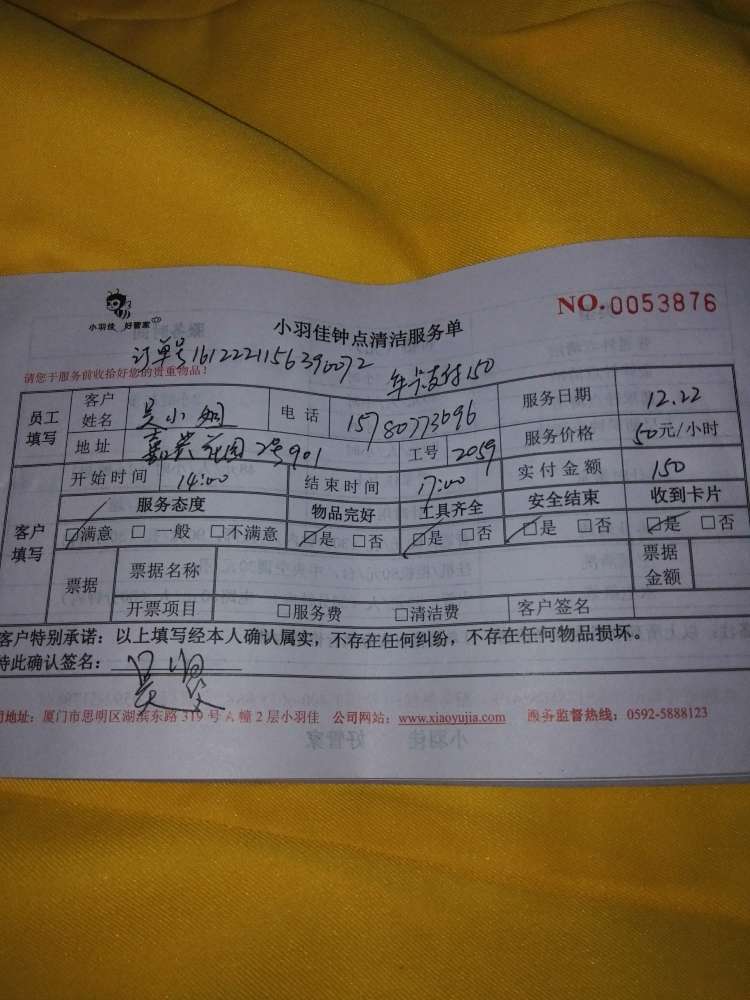 小羽佳 好管家
小羽佳钟点清洁服务单
NO.0053876
订单号1612221156390072
年卡支付150
请您于服务前收拾好您的贵重物品!
员工填写 客户姓名 吴小姐 电话 15780773696 服务日期 12.22
地址 嘉英花园2号901 工号 2059 服务价格 50元/小时
开始时间 14:00 结束时间 17:00 实付金额 150
客户填写 服务态度 物品完好 工具齐全 安全结束 收到卡片
☑满意 □一般 □不满意 ☑是 □否 ☑是 □否 ☑是 □否 ☑是 □否
票据 票据名称 票据金额
开票项目 □服务费 □清洁费 客户签名
客户特别承诺:以上填写经本人确认属实,不存在任何纠纷,不存在任何物品损坏。
特此确认签名:
司地址:厦门市思明区湖滨东路319号A幢2层小羽佳 公司网站:www.xiaoyujia.com 服务监督热线:0592-5888123